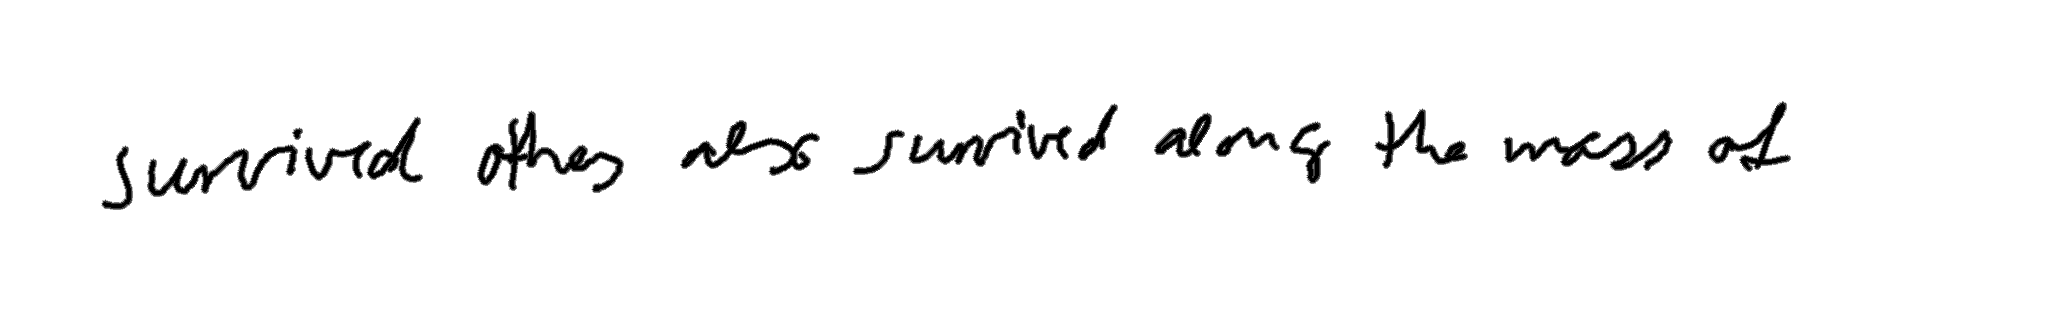 survived others also survived along the mass of